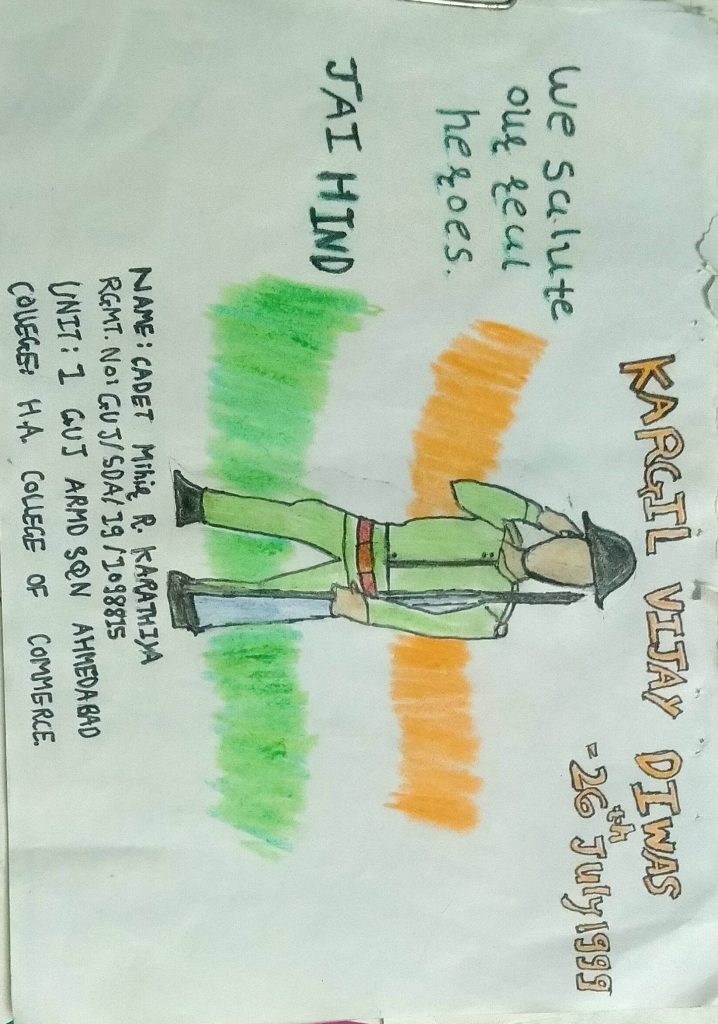 KARGIL VIJAY DIWAS
- 26th July 1999
We salute
our real
heroes.
JAI HIND
NAME: CADET Mihir R. KARATHIYA
RGMT. No: GUJ/SDA/19/1098815
UNIT: 1 GUJ ARMD SQN AHMEDABAD
COLLEGE: H.A. COLLEGE OF COMMERCE